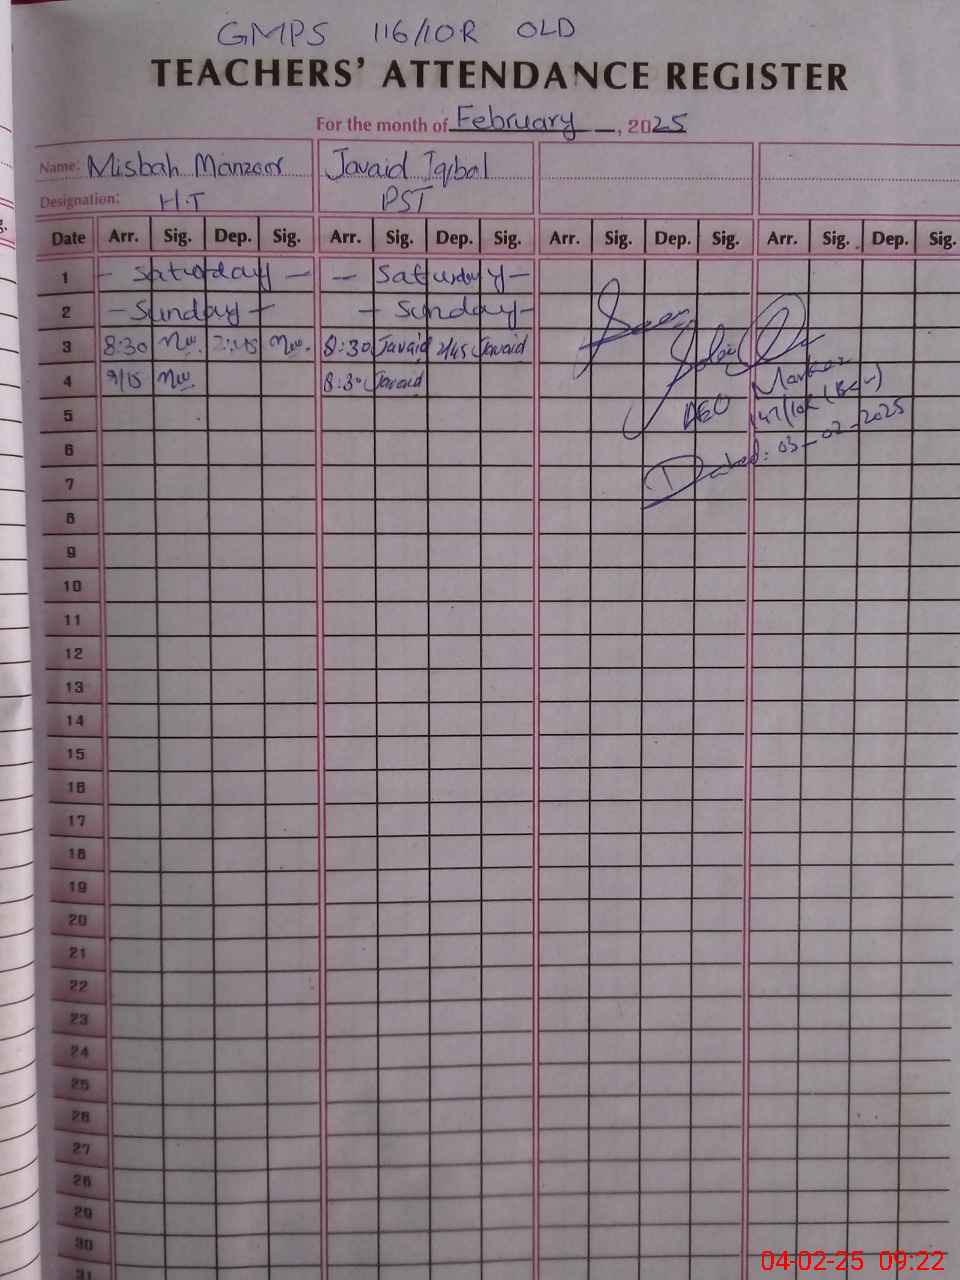 GMPS 116/10R OLD
TEACHERS' ATTENDANCE REGISTER
For the month of February, 2025
Name: Misbah Manzoor Javaid Iqbal
Designation: H.T PST
Date Arr. Sig. Dep. Sig. Arr. Sig. Dep. Sig. Arr. Sig. Dep. Sig. Arr. Sig. Dep. Sig.
1 - Saturday - - Saturday -
2 - Sunday - - Sunday -
3 8:30 2:45 8:30 Javaid 2/45 Javaid
4 9/15 8:30 Javaid
AEO Markaz
147/10R
Dated: 03-02-2025
5
6
7
8
9
10
11
12
13
14
15
16
17
18
19
20
21
22
23
24
25
26
27
28
29
30
31
04-02-25 09:22